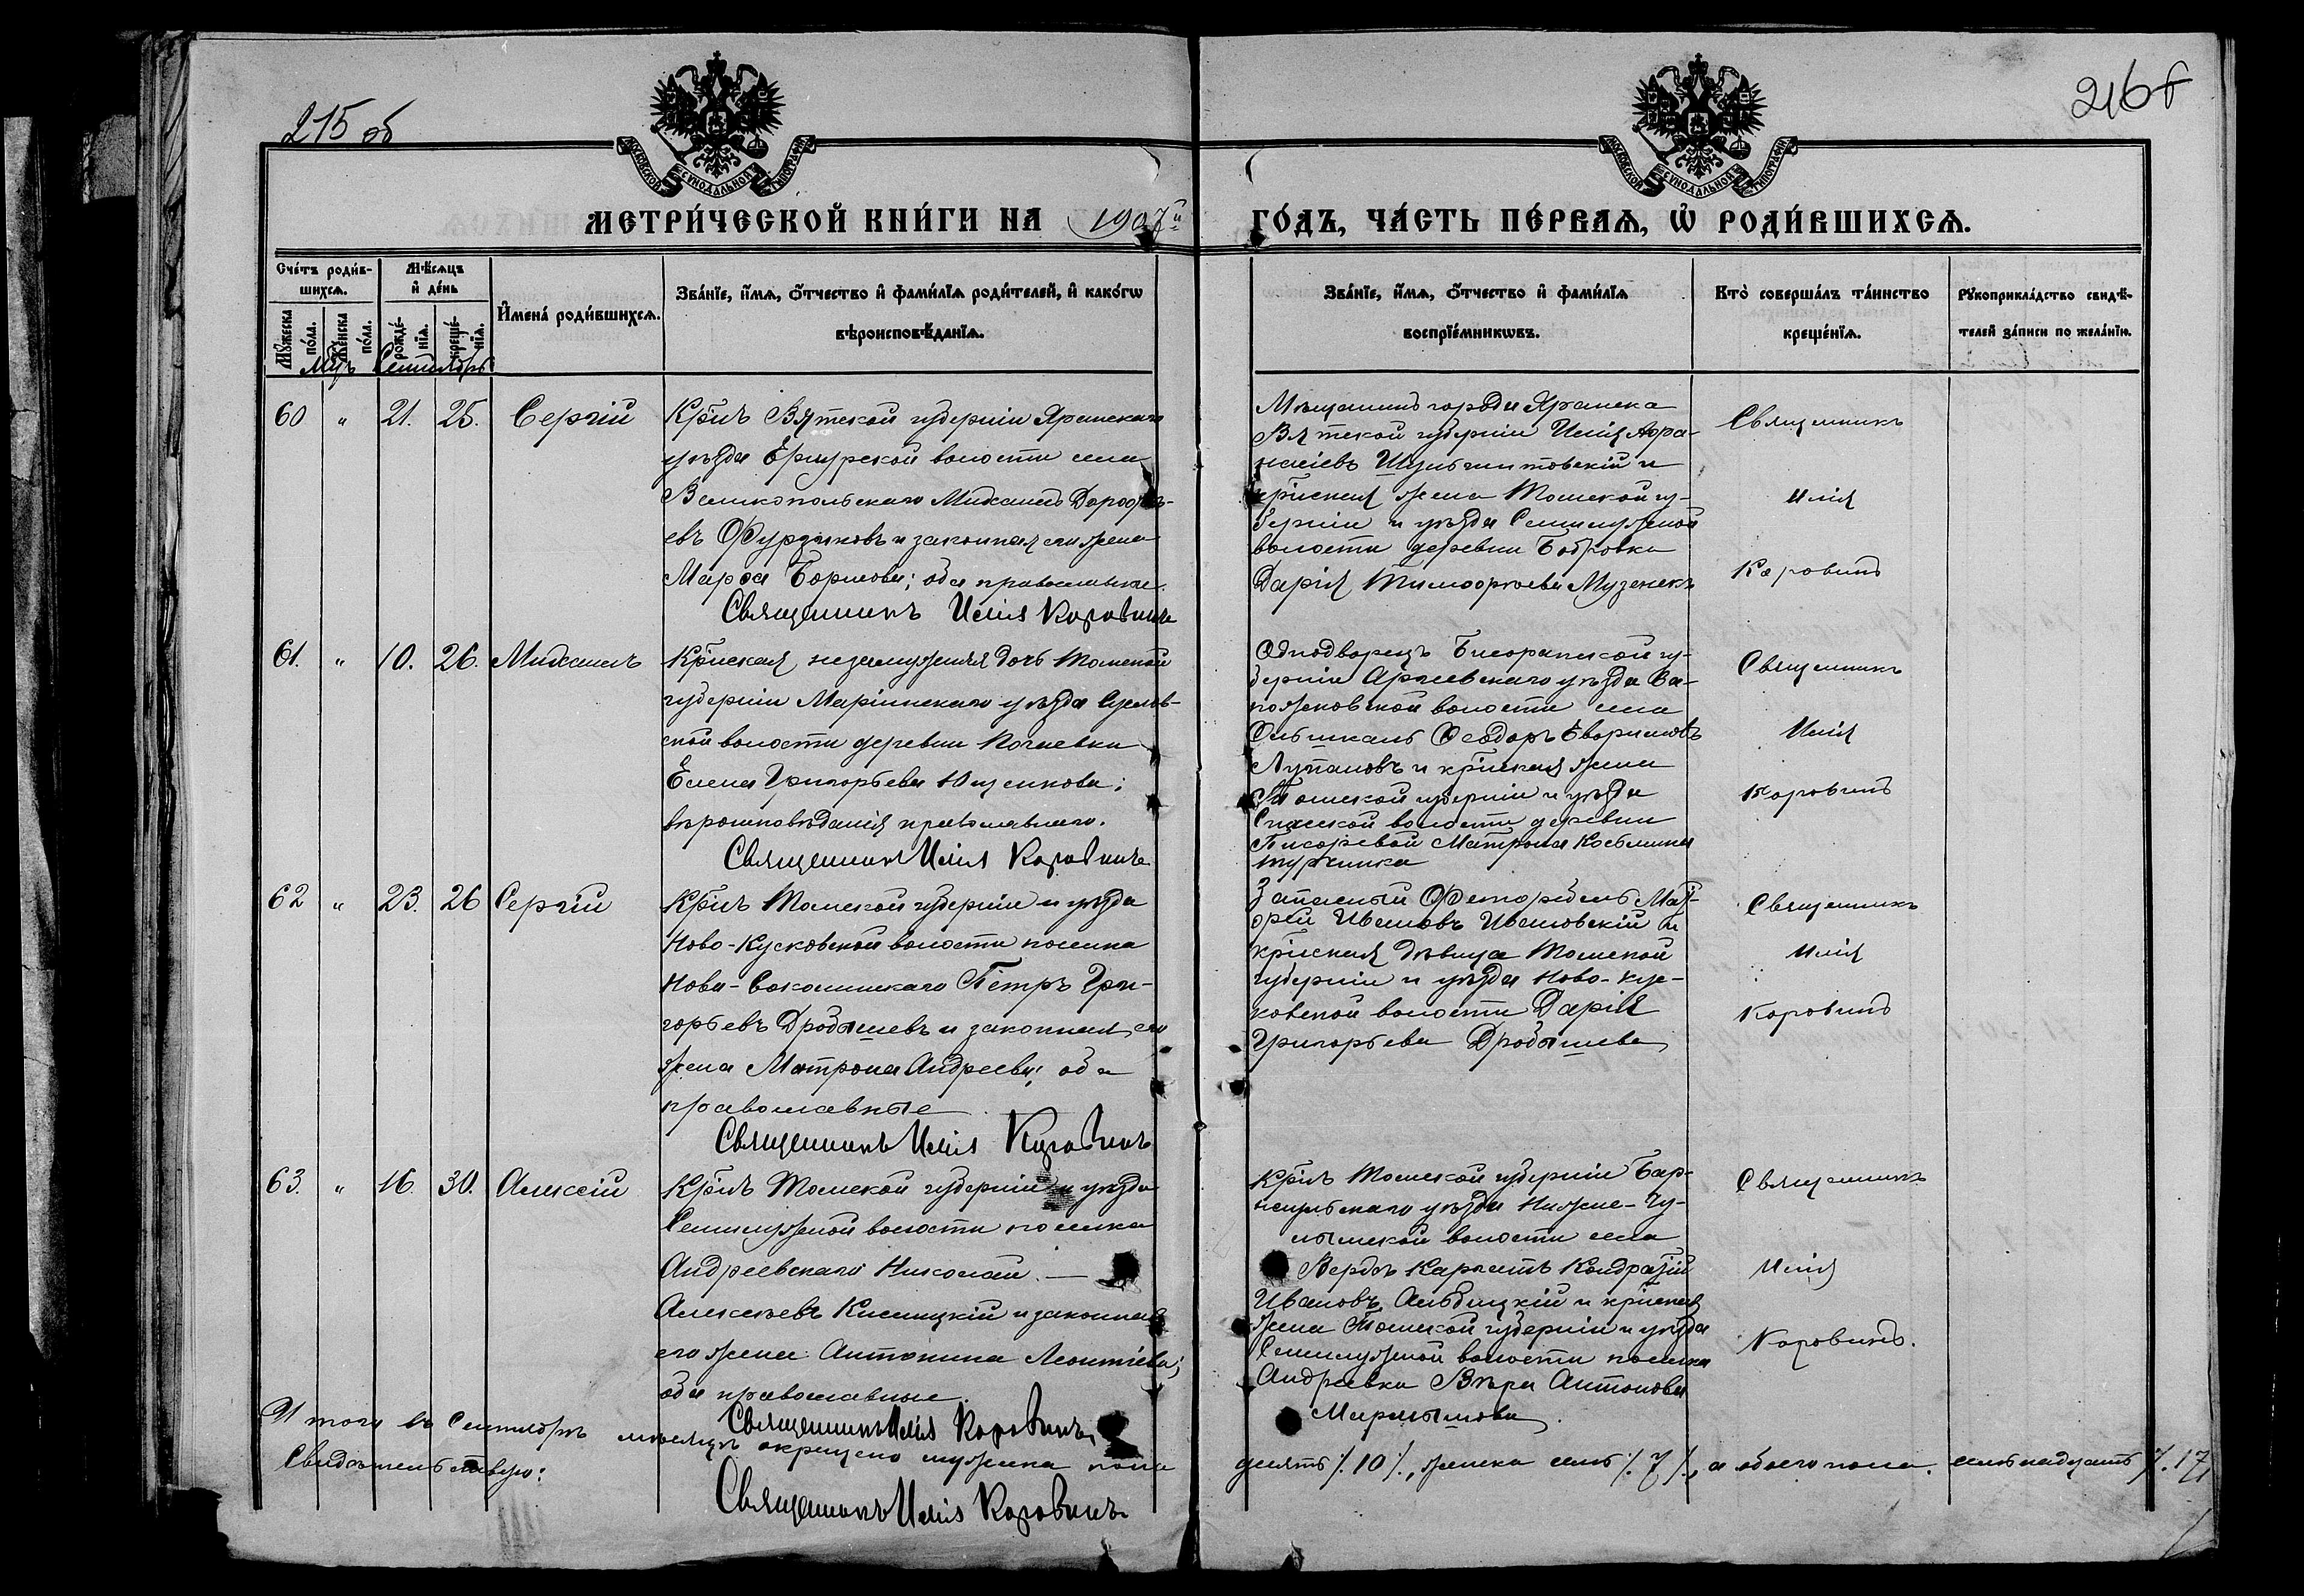 215 об
216 г
МОСКОВСКОЙ СѴНОДАЛЬНОЙ ТИПОГРАФІИ
МОСКОВСКОЙ СѴНОДАЛЬНОЙ ТИПОГРАФІИ
МЕТРИ́ЧЕСКОЙ КНИ́ГИ НА 1907й ГО́ДЪ, ЧА́СТЬ ПЕ́РВАѦ, Ѡ҆ РОДИ́ВШИХСѦ.
Сче́тъ роди́в-
шихсѧ.
Мꙋ́жеска по́ла.
Же́нска по́ла.
Мѣ́сѧцъ
и҆ де́нь
рожде́-нїѧ.
креще́-нїѧ.
И҆мена̀ роди́вшихсѧ.
Зва́нїе, и҆́мѧ, ѻ҆́тчество и҆ фами́лїѧ роди́телей, и҆ како́гѡ
вѣроисповѣ́данїѧ.
Зва́нїе, и҆́мѧ, ѻ҆́тчество и҆ фами́лїѧ
воспрїе́мникѡвъ.
Кто̀ соверша́лъ та́инство
креще́нїѧ.
Рꙋкоприкла́дство свидѣ́-
телей за́писи по жела́нїю.
Сентябрь
60 " 21. 25. Сергій
Кр͠нъ Вятской губерніи Яранскаго
уѣзда Ернурской волости села
Великопольскаго Михаилъ Дороѳѣ-
евъ и законная его жена
Марѳа Борисова; оба православные.
Священникъ Илія Коровинъ
Мѣщанинъ города Яранска
Вятской губерніи Илія Аѳа-
насіевъ и
кр͠нская жена Томской гу-
берніи и уѣзда Семилужной
волости деревни Бобровки
Дарія Тимоѳеева
Священникъ
Илія
Коровинъ
61. " 10. 26. Михаилъ
Кр͠нская незамужняя дочь Томской
губерніи Маріинскаго уѣзда Суслов-
ской волости деревни Почаевки
Елена Григорьева Ющенкова;
вѣроисповѣданія православнаго.
Священникъ Илія Коровинъ
Однодворецъ гу-
берніи уѣзда
волости села
Ѳеодоръ
Лупановъ и кр͠нская жена
Томской губерніи и уѣзда
Спасской волости деревни
Матрона
Священникъ
Илія
Коровинъ
62 " 23. 26 Сергій
Кр͠нъ Томской губерніи и уѣзда
Ново-Кусковской волости поселка
Ново-Соколинскаго Петръ Гри-
горьевъ Дробышевъ и законная его
жена Матрона Андреева; оба
православные
Священникъ Илія Коровинъ
Запасный Мат-
ѳей Ивановъ Ивановскій и
кр͠нская дѣвица Томской
губерніи и уѣзда Ново-Кус-
ковской волости Дарія
Григорьева Дробышева
Священникъ
Илія
Коровинъ
63. " 16. 30. Алексій
Кр͠нъ Томской губерніи и уѣзда
Семилужной волости поселка
Андреевскаго Николай —
Алексѣевъ Кисницкій и законная
его жена Антонина Леонтіева;
оба православные.
Священникъ Илія Коровинъ
Кр͠нъ Томской губерніи Бар-
наульскаго уѣзда Нижне-Чу-
лымской волости села
Кондратій
Ивановъ и кр͠нская
жена Томской губерніи и уѣзда
Семилужной волости поселка
Андреевки Вѣра Антонова
Священникъ
Илія
Коровинъ.
Итого въ Сентябрѣ мѣсяцѣ окрещено мужска пола десять /. 10 /., женска семь /. 7 /., а обоего пола семнадцать /. 17
Свидѣтельствую:
Священникъ Илія Коровинъ